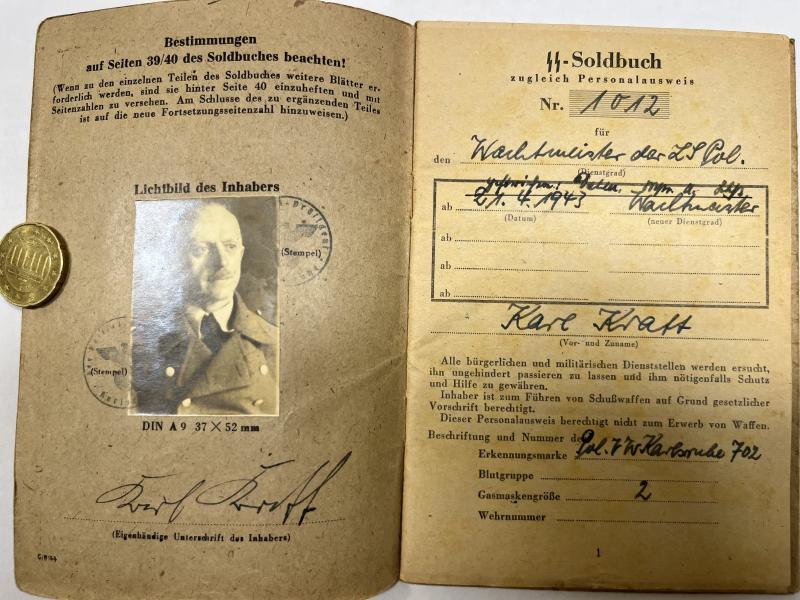 Bestimmungen
auf Seiten 39/40 des Soldbuches beachten!
(Wenn zu den einzelnen Teilen des Soldbuches weitere Blätter er-
forderlich werden, sind sie hinter Seite 40 einzuheften und mit
Seitenzahlen zu versehen. Am Schlusse des zu ergänzenden Teiles
ist auf die neue Fortsetzungsseitenzahl hinzuweisen.)
Lichtbild des Inhabers
(Stempel)
(Stempel)
DIN A 9 37 × 52 mm
Karl Kraft
(Eigenhändige Unterschrift des Inhabers)
ϟϟ-Soldbuch
zugleich Personalausweis
Nr. 1012
für
den Wachtmeister der LS Pol.
(Dienstgrad)
ab 21.4.1943 Wachtmeister
(Datum) (neuer Dienstgrad)
ab
ab
ab
Karl Kraft
(Vor- und Zuname)
Alle bürgerlichen und militärischen Dienststellen werden ersucht,
ihn ungehindert passieren zu lassen und ihm nötigenfalls Schutz
und Hilfe zu gewähren.
Inhaber ist zum Führen von Schußwaffen auf Grund gesetzlicher
Vorschrift berechtigt.
Dieser Personalausweis berechtigt nicht zum Erwerb von Waffen.
Beschriftung und Nummer der
Erkennungsmarke Pol. V W Karlsruhe 702
Blutgruppe
Gasmaskengröße 2
Wehrnummer
1